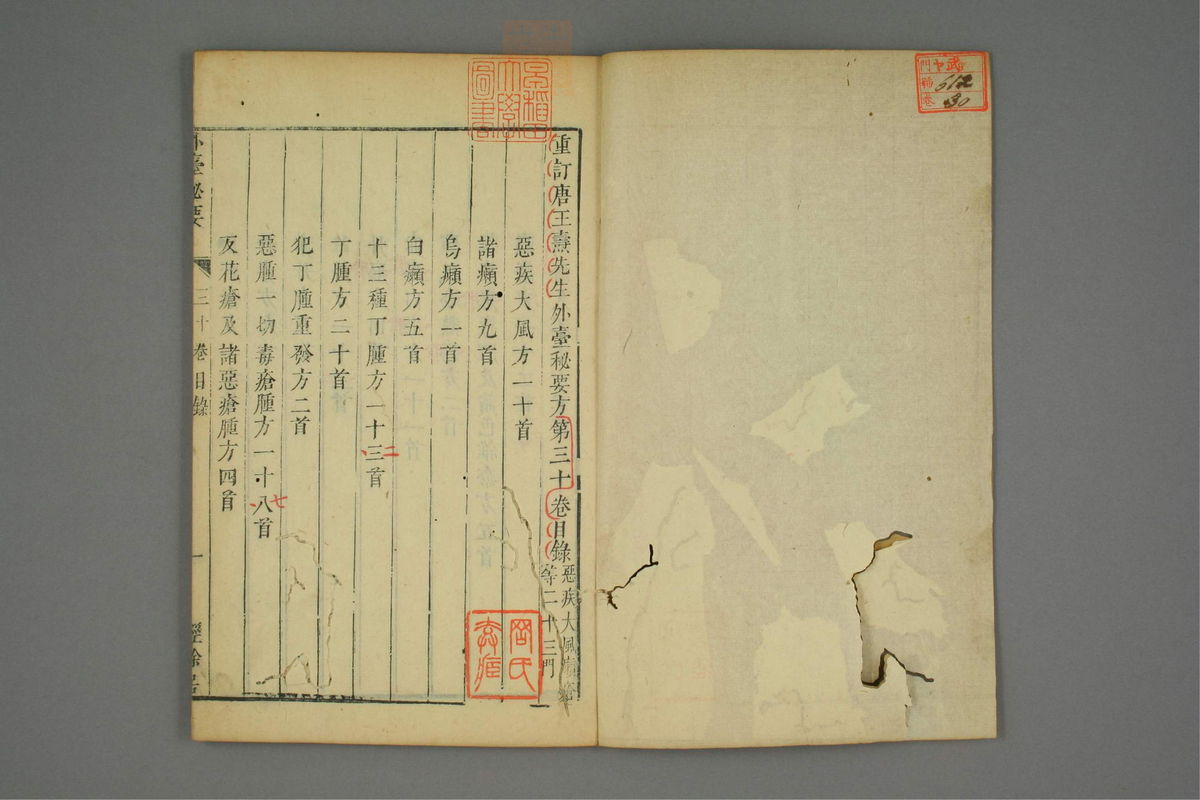 重訂唐王燾先生外臺祕要方第三十卷目錄
惡疾大風
等二十三門
惡疾大風方一十首
諸癩方九首
烏癩方一首
白癩方五首
十三種丁腫方一十三首
二
丁腫方二十首
犯丁腫重發方二首
惡腫一切毒瘡腫方一十八首
七
反花瘡及諸惡瘡腫方四首
外臺祕要
三十卷目錄
一
經餘居
早稻田大學圖書
門
號
卷
612
30